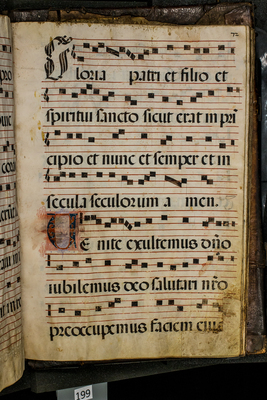 Gloria patri et filio et
spiritui sancto sicut erat in pri
cipio et nunc et semper et in
secula seculorum a men.
Ue nite exultemus dño
iubilemus deo salutari nr̃o
preoccupemus faciem eius
199